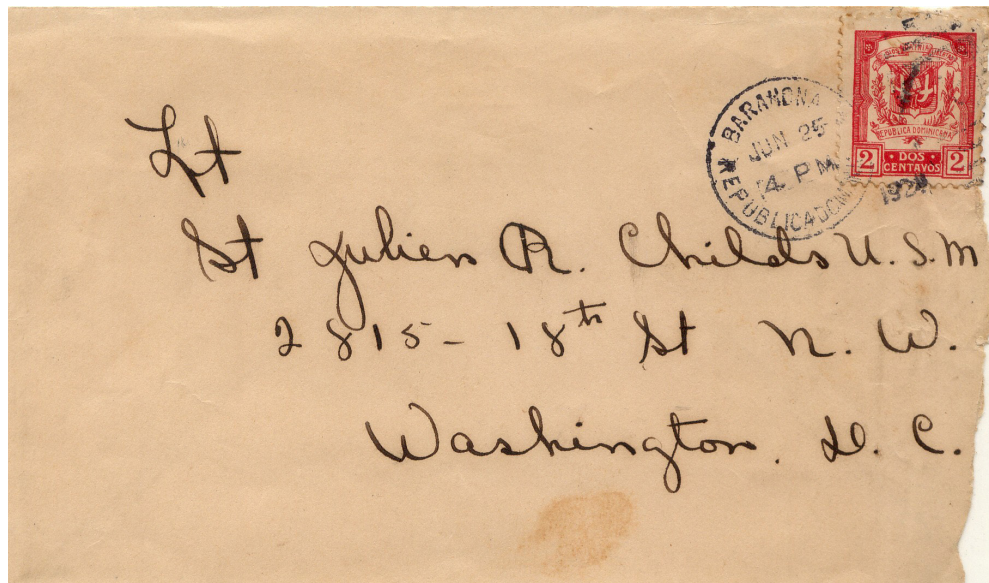 Lt
St Julien R. Childs U.S.M
2815 - 18th St N. W.
Washington. D. C.
BARAHONA
JUN 25
4 PM
REPUBLICA DOM
REPUBLICA DOMINICANA
2 DOS CENTAVOS 2